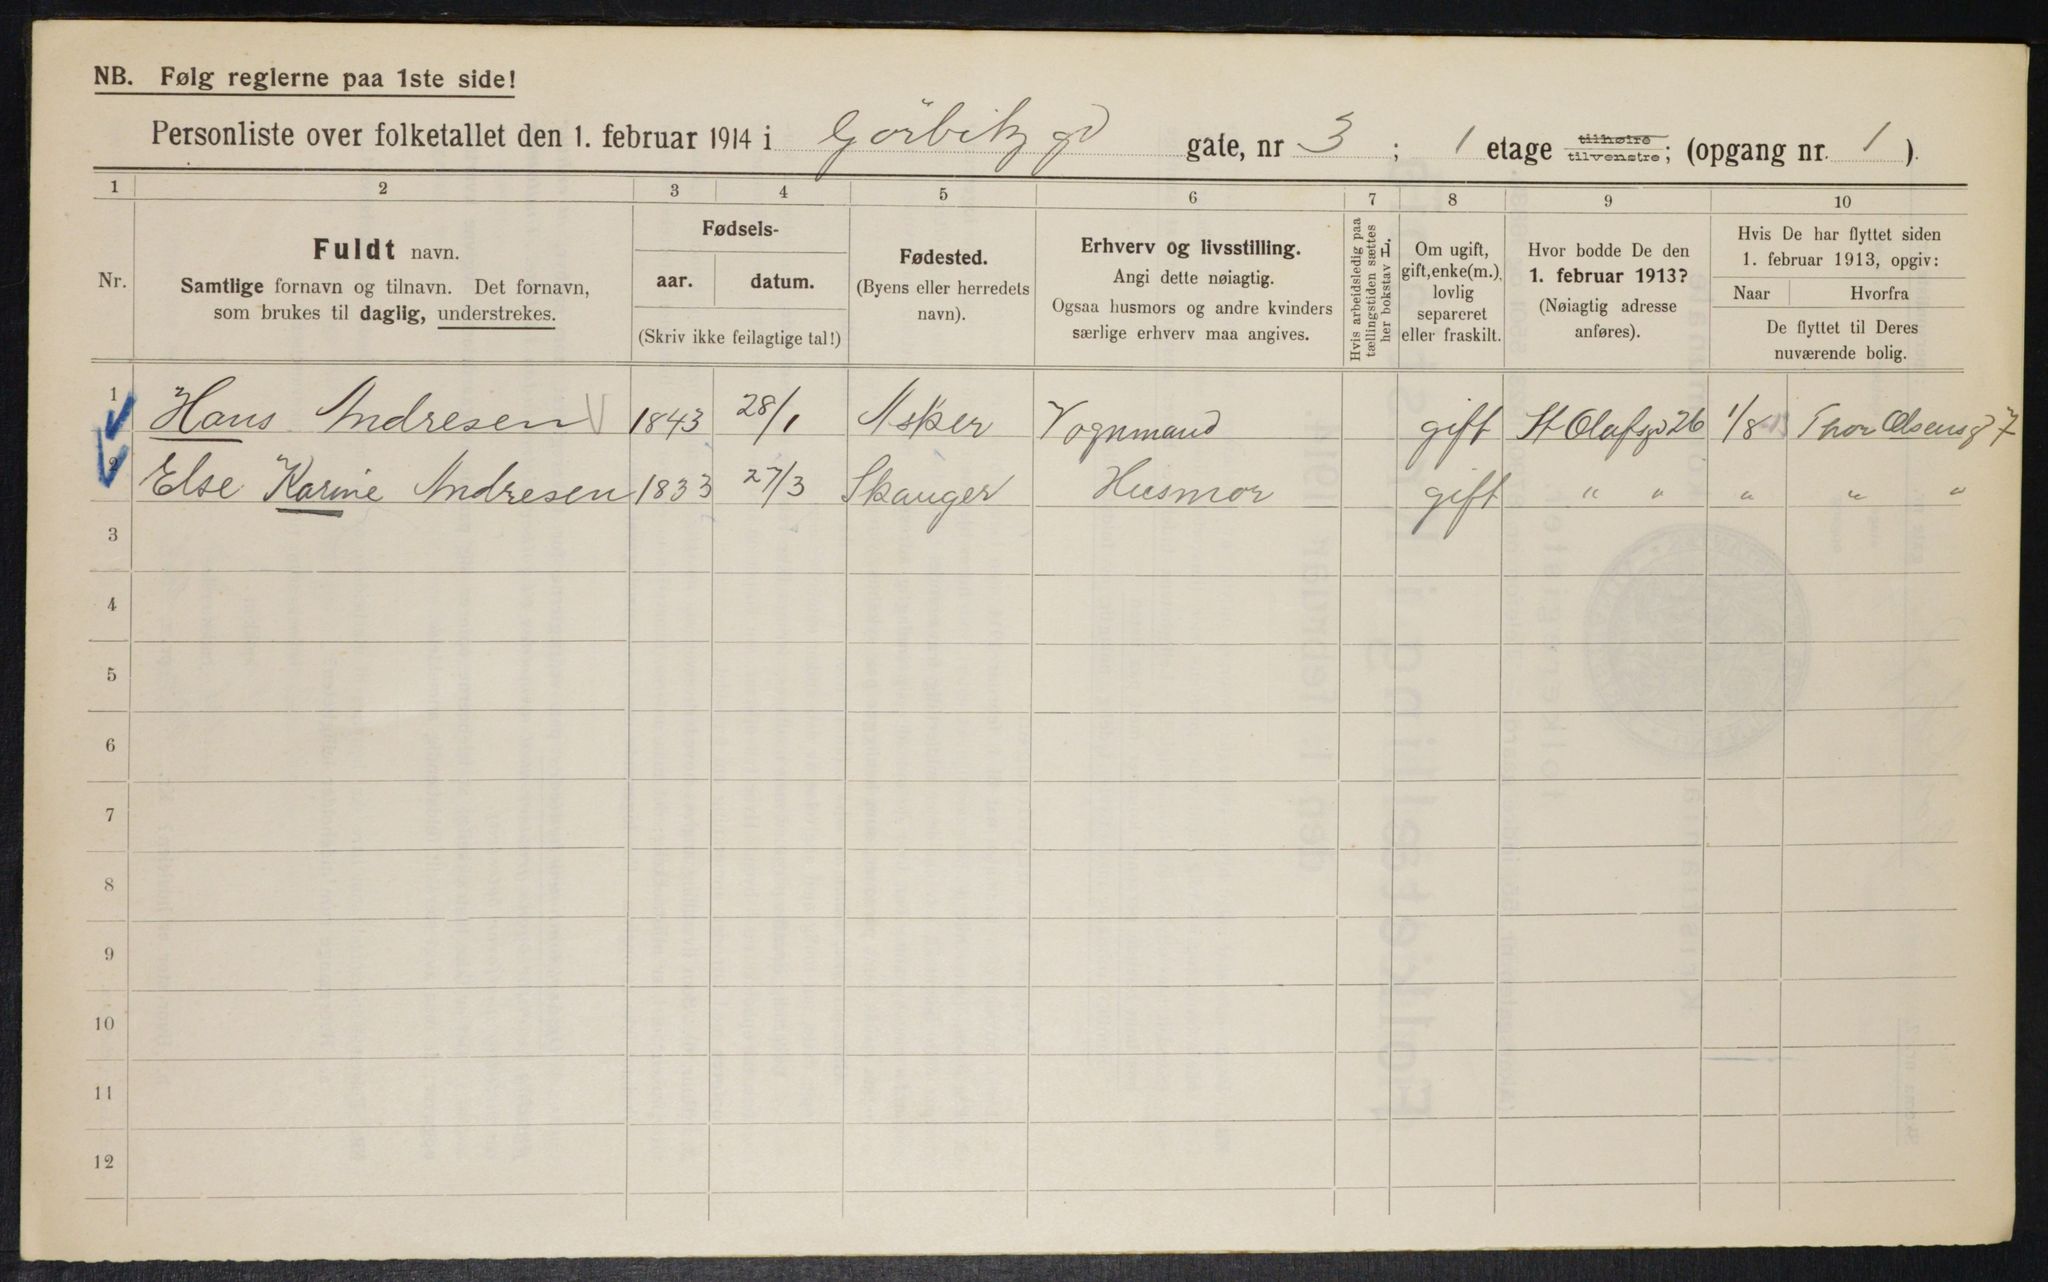 NB. Følg reglerne paa 1ste side!
Personliste over folketallet den 1. februar 1914 i Görbitz gd gate, nr 3 ; 1 etage tilhøire tilvenstre; (opgang nr. 1 ).
1 2 3 4 5 6 7 8 9 10
Nr.
Fuldt navn.
Samtlige fornavn og tilnavn. Det fornavn,
som brukes til daglig, understrekes.
Fødsels-
aar. datum.
(Skriv ikke feilagtige tal!)
Fødested.
(Byens eller herredets
navn).
Erhverv og livsstilling.
Angi dette nøiagtig.
Ogsaa husmors og andre kvinders
særlige erhverv maa angives.
Hvis arbeidsledig paa
tællingstiden sættes
her bokstav L.
Om ugift,
gift, enke(m.),
lovlig
separeret
eller fraskilt.
Hvor bodde De den
1. februar 1913?
(Nøiagtig adresse
anføres).
Hvis De har flyttet siden
1. februar 1913, opgiv:
Naar Hvorfra
De flyttet til Deres
nuværende bolig.
1 Hans Andresen 1843 28/1 Asker Vognmand gift St Olafsgd 26 1/8 Thor Olsensg 7
2 Else Karine Andresen 1833 27/3 Skauger Husmor gift " " " " "
3
4
5
6
7
8
9
10
11
12